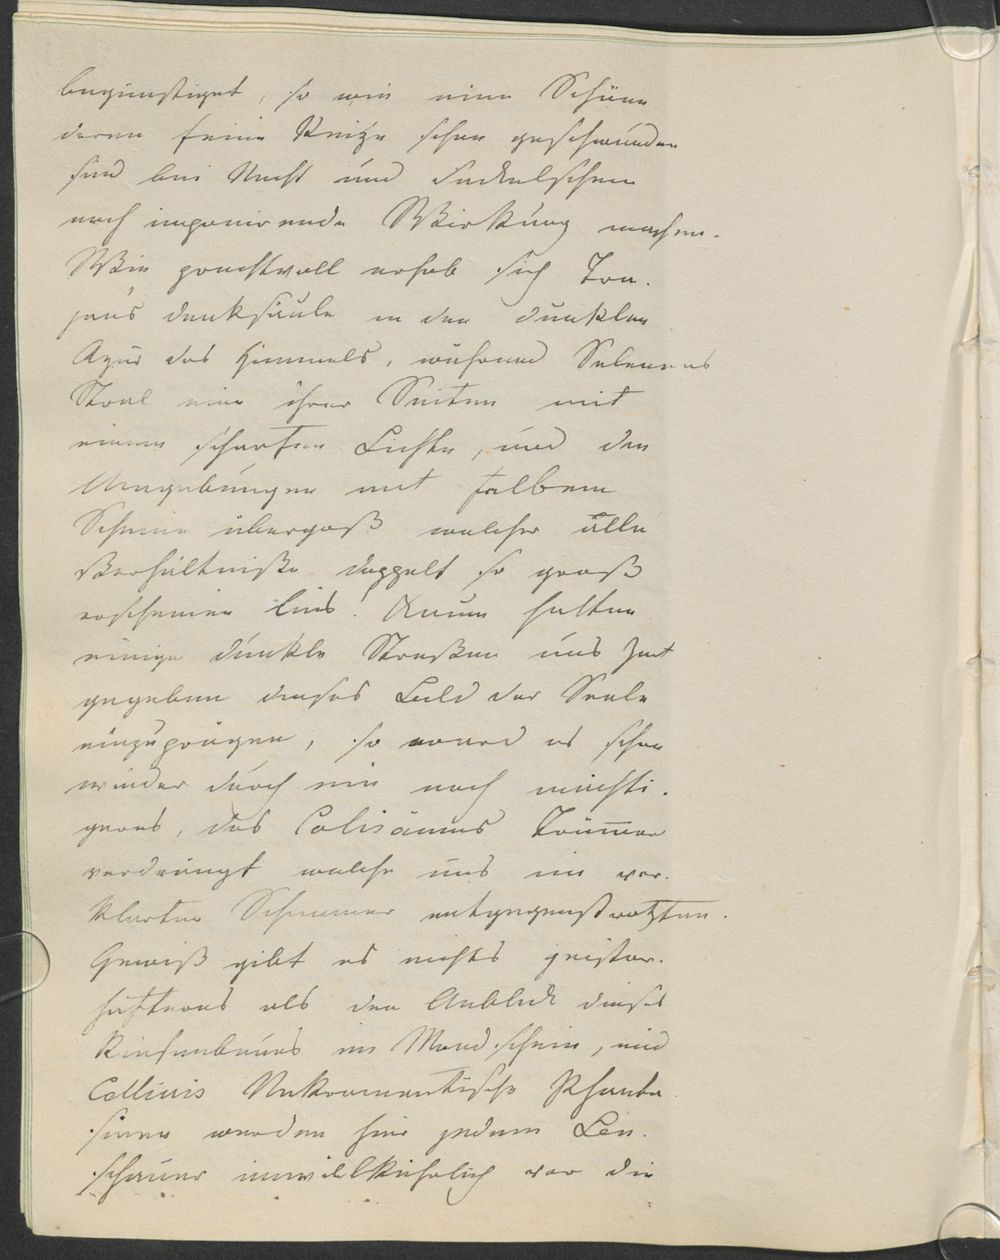 begünstiget, so wie eine Schöne
deren feine Reitze schon geschwunden
sind bei Nacht und Fackelschein
noch imponirende Wirkung machen.
Wie prachtvoll erhob sich Tra-
jans Denksäule in den dunklen
Azur des Himmels, während Selenens
Stral eine ihrer Seiten mit
einem scharfen Lichte, und den
Umgebungen mit falbem
Scheine übergoß welcher alle
Verhältniße doppelt so groß
erscheinen lies! Kaum hatten
einige dunkle Straßen uns Zeit
gegeben dieses Bild der Seele
einzuprägen, so ward es schon
wieder durch ein noch mächti-
geres, des Colisäums Trümer
verdrängt welche uns im ver-
klärten Schimmer entgegenstralten.
Gewiß gibt es nichts geister-
hafteres als den Anblick dieses
Riesenbaues im Mondschein, und
Cellinis Nekromantische Phanta-
sieen werden hier jedem Be-
schauer unwillkührlich vor die